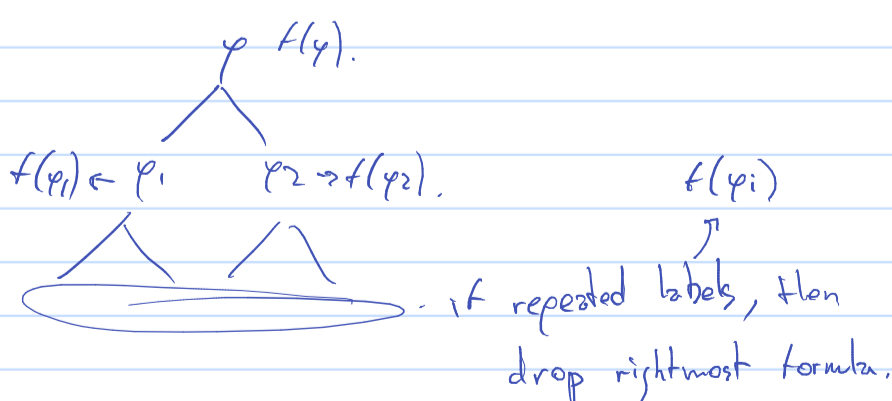 φ f(φ).
f(φ₁) ← φ₁ φ₂ → f(φ₂). f(φᵢ)
. if repeated labels, then
drop rightmost formula.